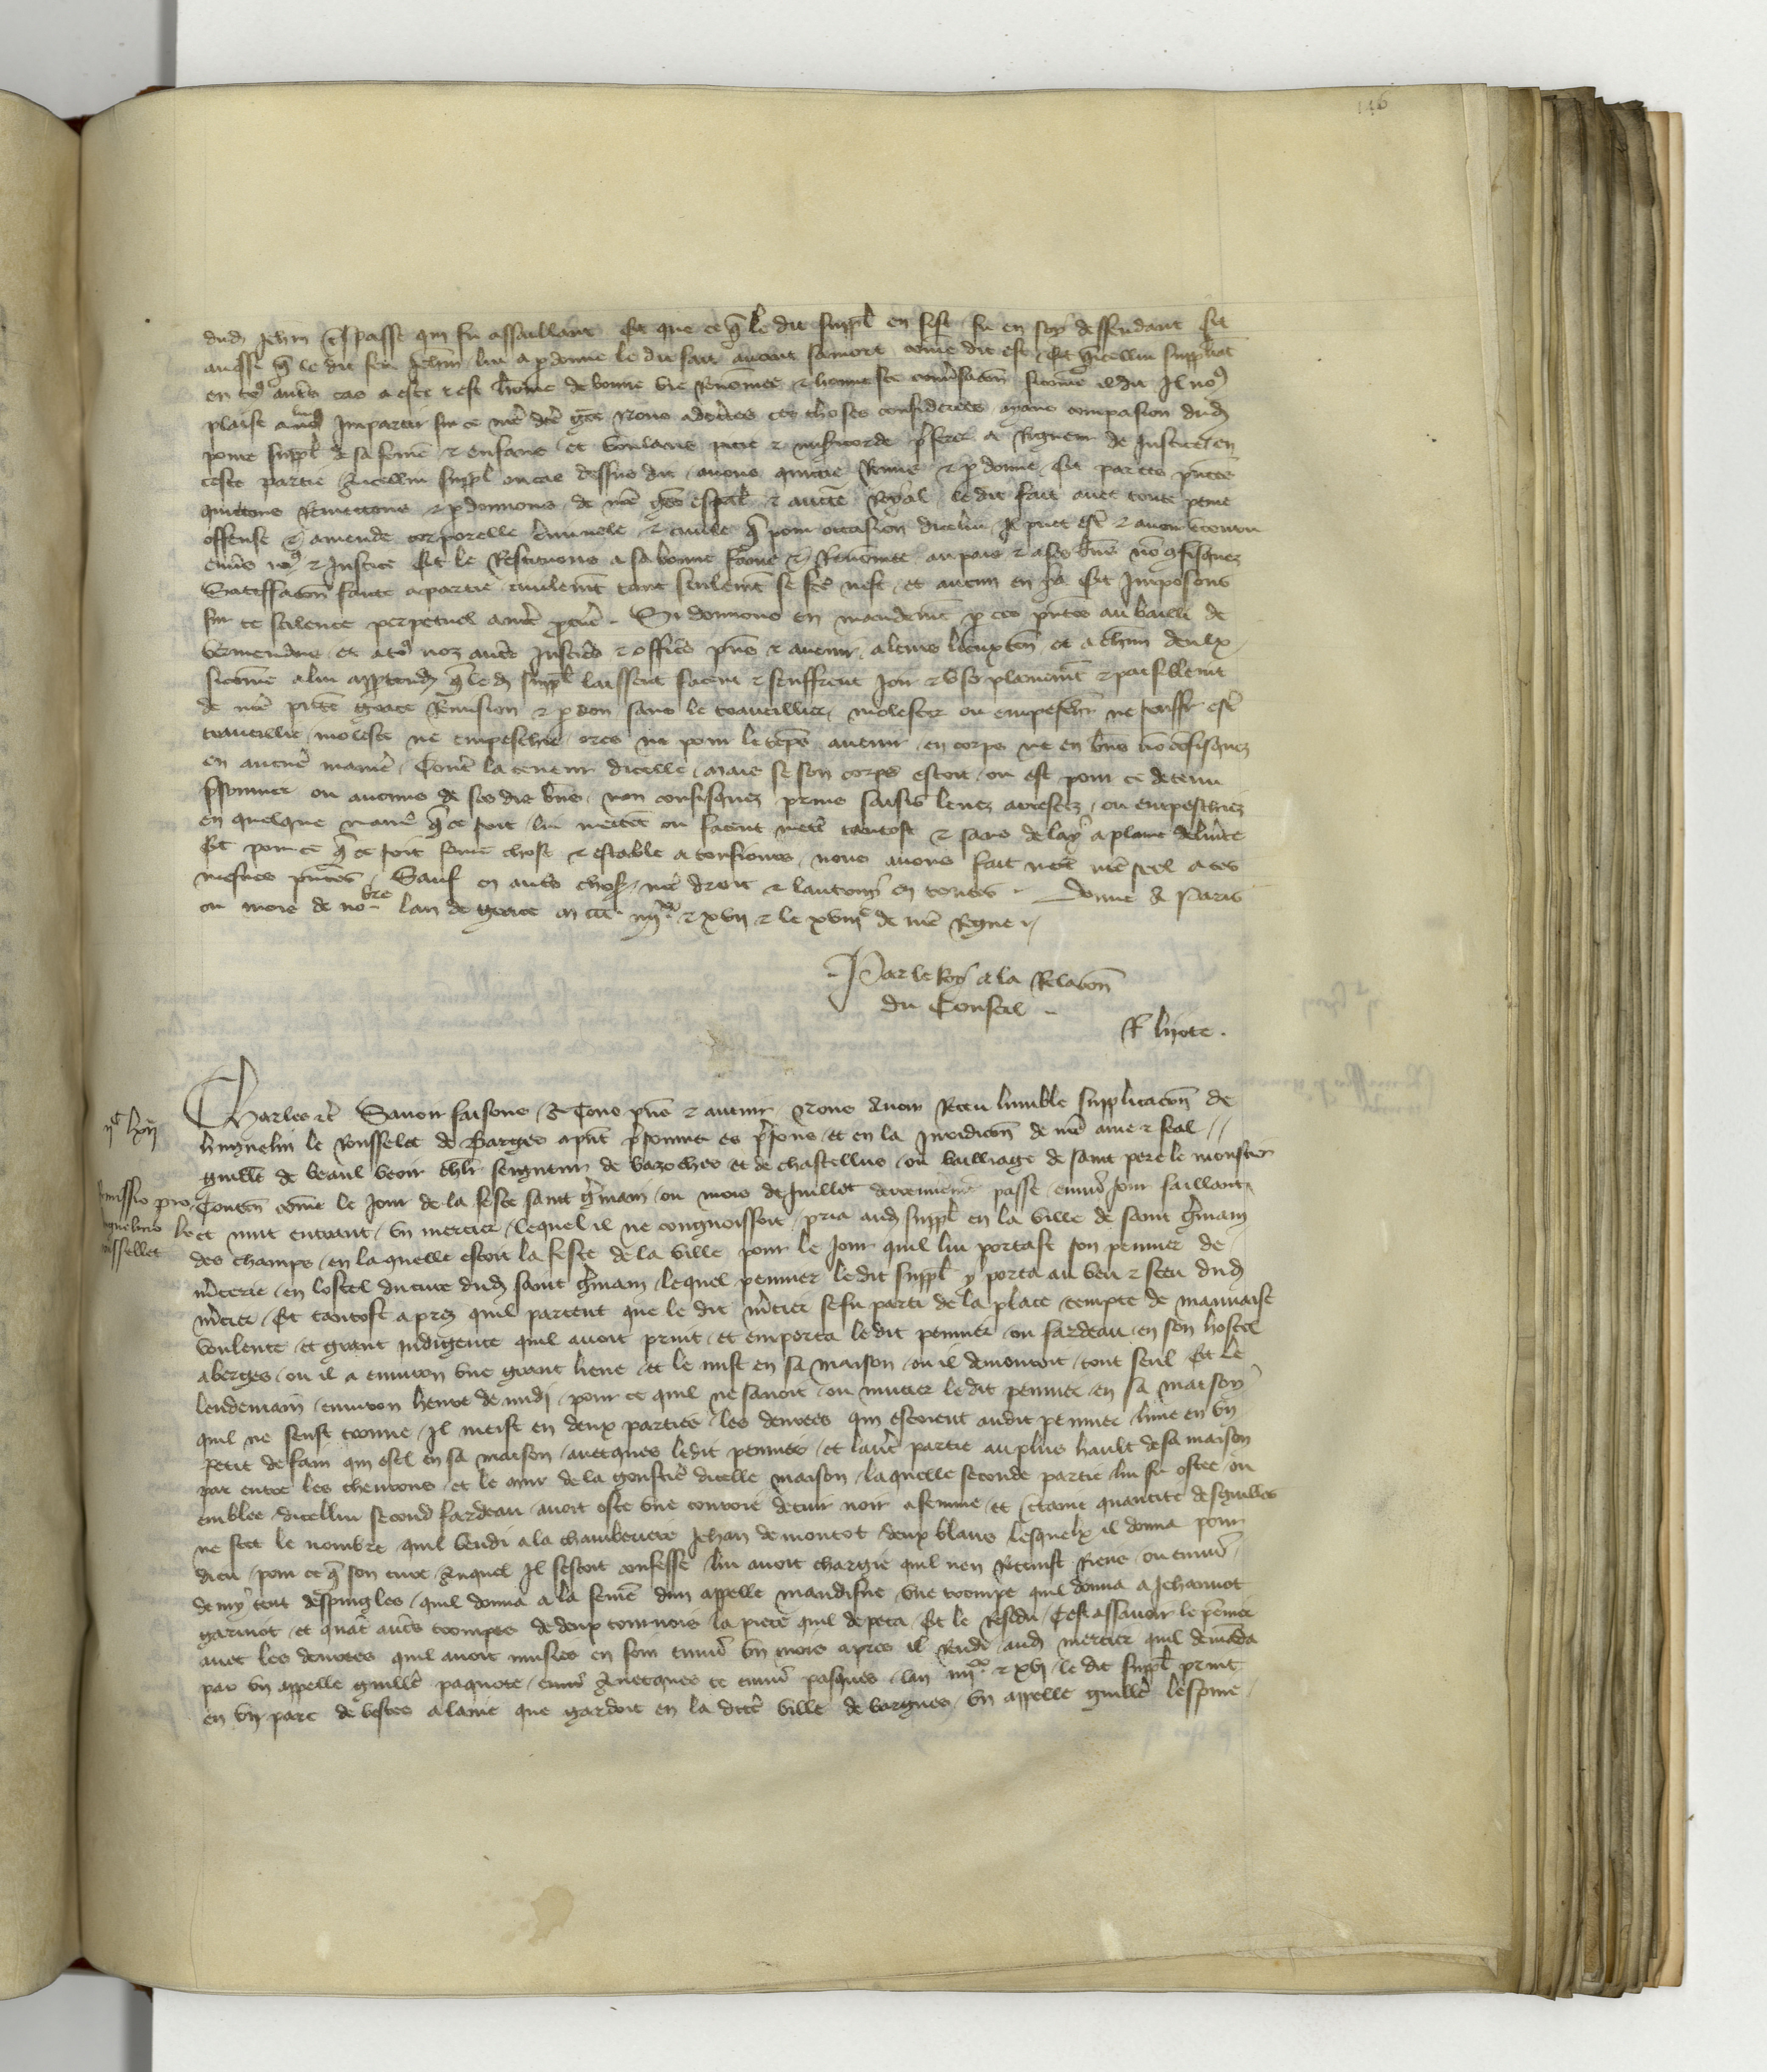 146
dud Jehan trespasse qui fu assaillant Et que ce q le dit suppl en fist fu en soy deffendant Et
aussi q le dit feu Jehan lui a pdonne le dit fait avant sa mort come dit est Et q icellui suppliant
en to9 autres cas a este & est home de bonne vie renommee & honneste conversacon sicome il dit Il no9
plaise aud impartir sur ce nre dce grace Nous adecertes ces choses considerees ayans compasion dud
povre suppl de sa feme & enfans et voulans pitie & misericorde preferer a Rigueur de Justice en
ceste partie A icellui suppl ou cas dessus dit avons quitte Remis & pdonne Et par ces pntes
quittons Remettons & pdonnons de nre grace espal & aucte Royal le dit fait avec toute peine
offense & amende corporelle criminele & civile q pour occasion dicelui Il puet estre & avoir encouru
envs no9 & Justice Et le Restituons a sa bonne fame & Renomee au pais & a ses biens no confisquez
Satisfacon faite a partie civilemt tant seulemt se fcte nest et aucun en y a Et Imposons
sur ce scilence perpetuel a nre procur Si donnons en mandemt p ces pntes au bailli de
vermendois et a to9 noz autres Justices & officiers pns & avenir a leurs lieuxten et a chun deulx
sicome a lui apptendra q le d suppl laissent facent & seuffrent Joir & user plainemt & paisiblemt
de nre pnte grace Remission & pdon sans le traveillier molester ou empeschier ne souffrir estre
traveillie moleste ne empeschie ores ne pour le teps avenir en corps ne en biens no confisquez
en aucune maniere Contre la teneur dicelle mais se son corps estoit ou est pour ce detenu
prisonnier ou aucuns de ses dis biens non confisquez prins saisis levez arrestez ou empeschiez
en quelque maniere q ce soit lui mettent ou facent mettre tantost & sans delay a plaine delivrce
Et pour ce q ce soit ferme chose & estable a tousiours nous avons fait mettre nre seel a ces
mesmes pntes Sauf en autres choses nre droit & lautruy en toutes Donne a Paris
ou mois de novbre lan de grace m ccc iiiixx & xvii & le xviiie de nre Regne
Par le Roy a la Relacon
du Conseil
F lijote
iic lxii
Charles &c Savoir faisons A Tous pns & avenir Nous Avoir Receu lumble supplicacon de
huguelin le Rousselet de Barges apnt prisonnier es prisons et en la Juridicon de nre ame & feal
guille de beaul veoir chlr seigneur de bazoches et de chastellus ou bailliage de saint pere le monstier
Remissio pro
huguelino le
Rossellet
Conten come le Jour de la feste saint germain ou mois de Juillet derrenieremt passe environ Jour faillant
et nuit entrant un mercier lequel il ne congnoissoit pria aud suppl en la ville de saint germain
des champs en laquelle estoit la feste de la ville pour le Jour quil lui portast son pennier de
mcerie en lostel du cure dud saint germain lequel pennier ledit suppl y porta au veu & sceu dud
mcier Et tantost apres quil partent que le dit mcier se fu parti de la place tempte de mauvaise
voulente et grant indigence quil avoit print et emporta ledit pennier ou fardeau en son hostel
a berges ou il a environ une grant lieue et le mist en sa maison ou il demouroit tout seul Et le
lendemain environ heure de midi pour ce quil ne savoit ou mucier le dit pennier en sa maison
quil ne feust trouve Il meist en deux parties les denrees qui estoient audit pennier lune en un
petit de fain qui ert en sa maison avecques ledit pennier et laute partie au plus hault de sa maison
par entre les chevrons et le mur de la goustiere dicelle maison laquelle seconde partie lui fu ostee ou
emblee dicellui second fardeau avoit oste une courroie de cuir noir a femme et certaine quantite desguilles
ne scet le nombre quil vendi a la chamberiere Jehan de montot deux blans lesquelx il donna pour
dieu pour ce q son cure Auquel Il sestoit confesse lui avoit chargie quil nen Retenist Riens ou environ
demy cent despingles quil donna a la feme dun appelle maudisne une trompe quil donna a Jehannot
garniot et quatre autres trompes de deux tournois la piece quil depeca Et le Residu Cest assavoir le pennier
avec les denrees quil avoit mises en foin environ un mois apres il Rendi aud mercier quil demada
par un appelle guille paquote environ Avecques ce environ pasques lan iiiixx & xvi le dit suppl print
en un parc de bestes a laine que gardoit en la dicte ville de bargues un appelle guille lespine